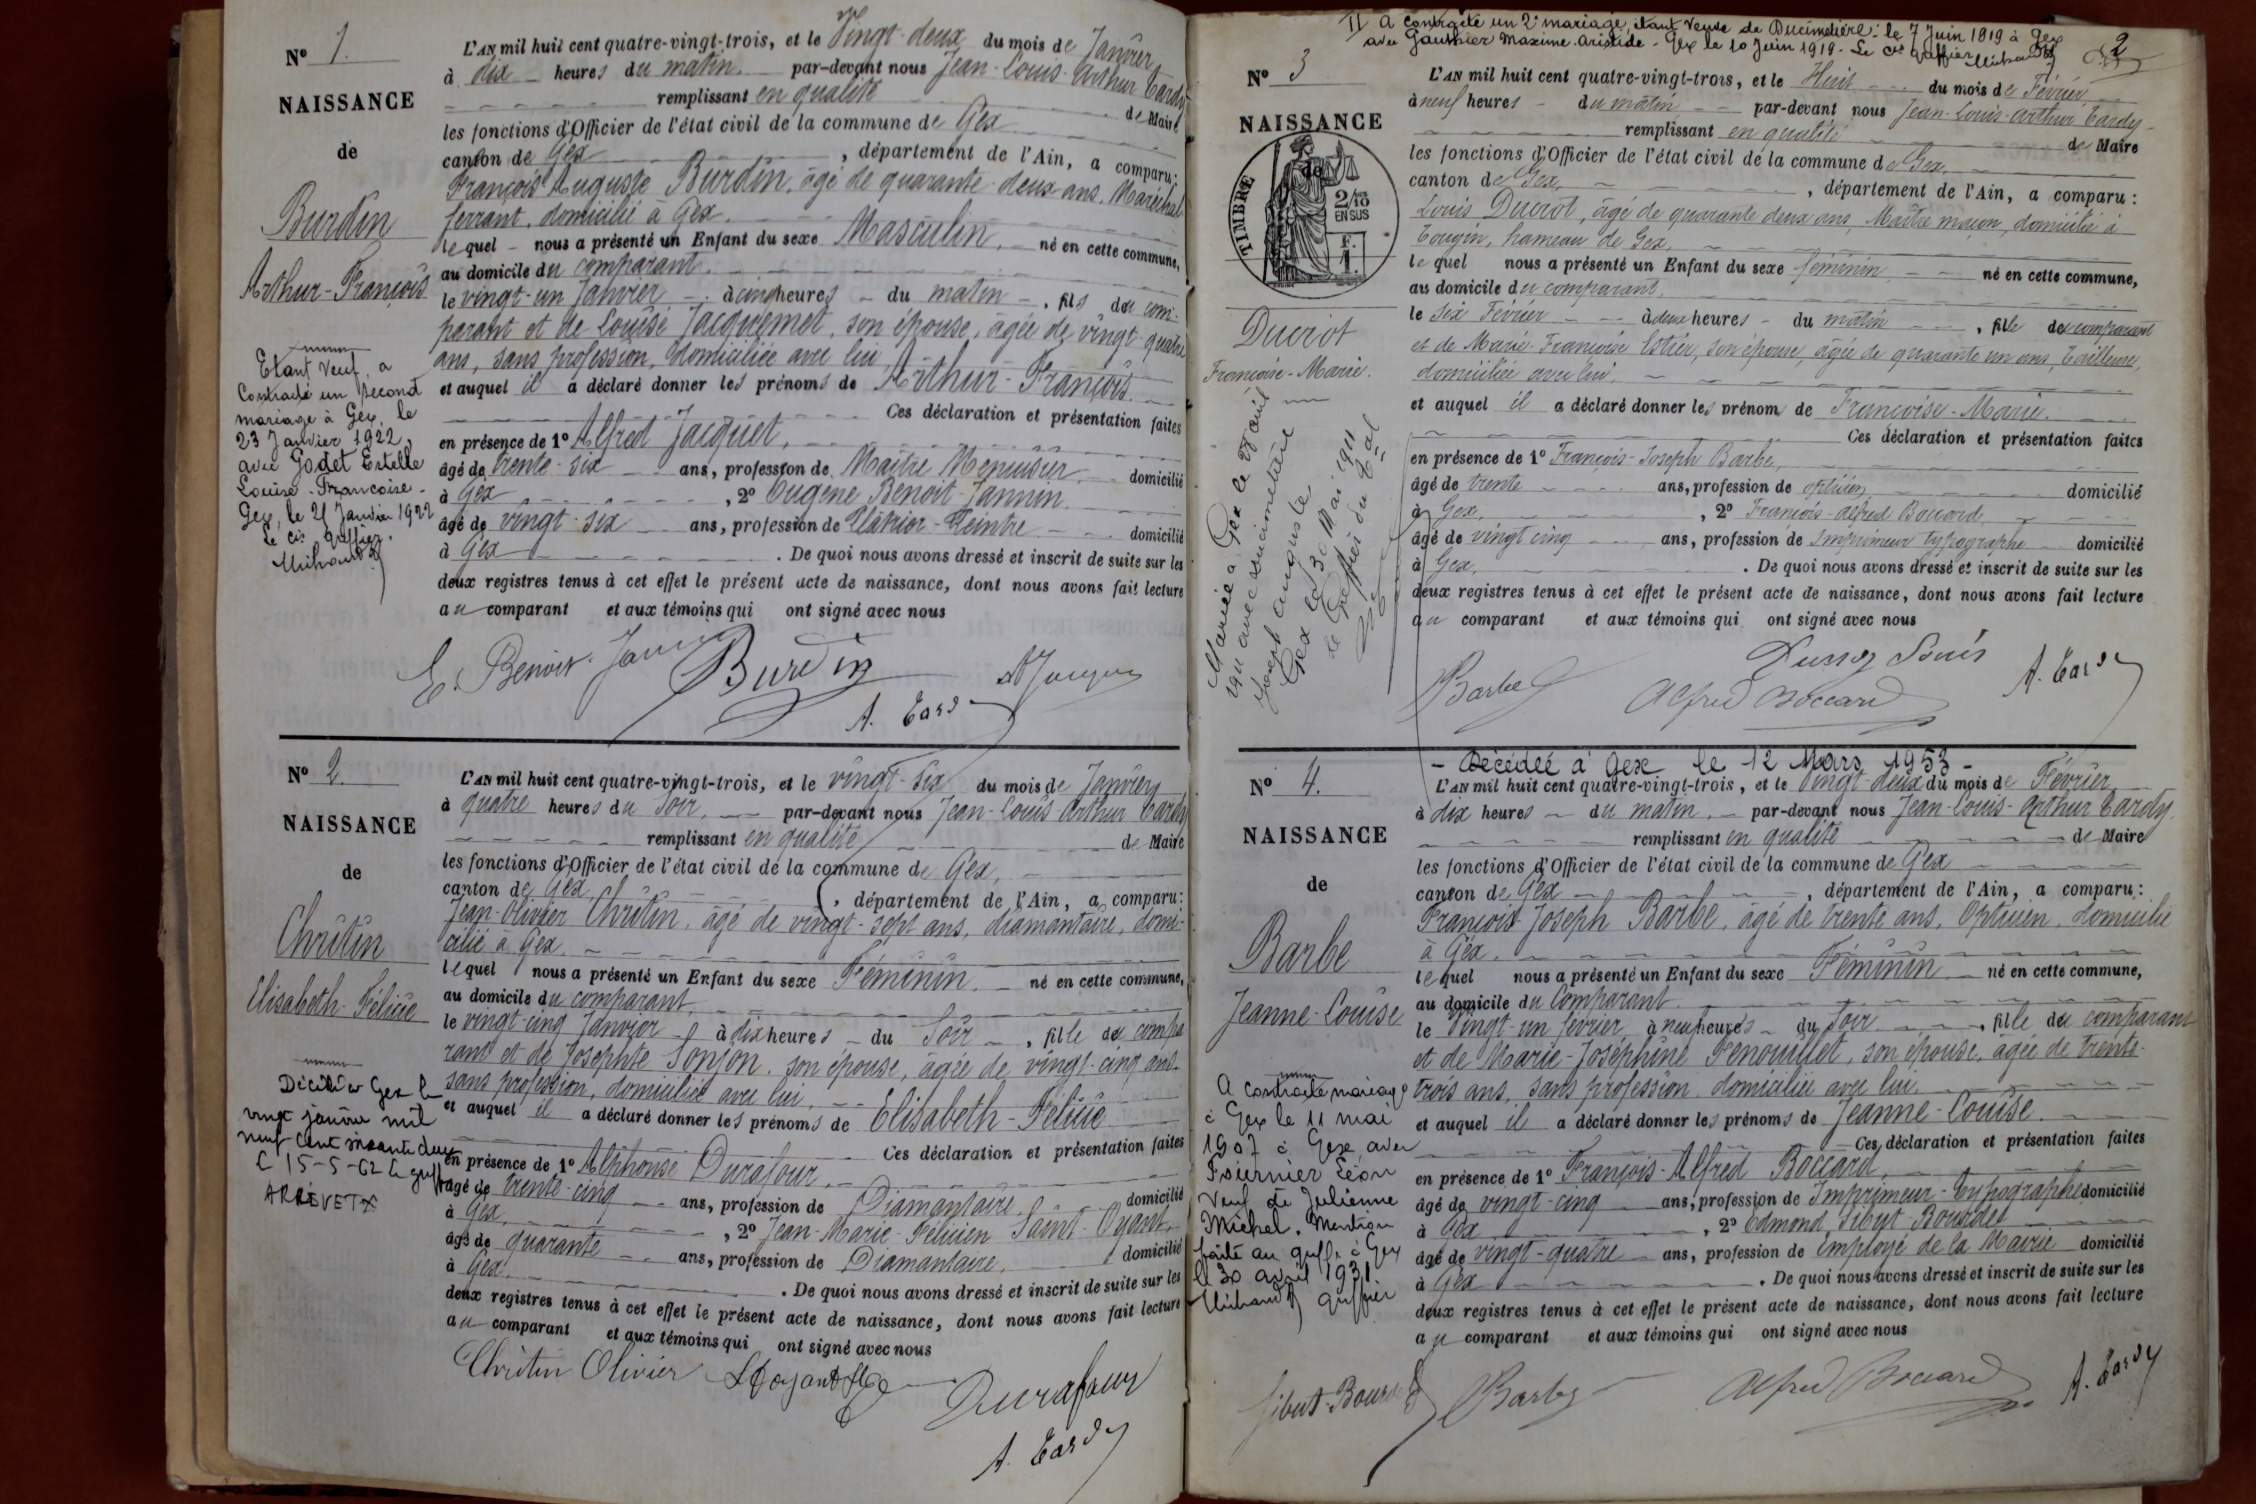 N° 1.
NAISSANCE
de
Burdin
Arthur-François
Etant Veuf, a
Contracté un second
mariage à Gex, le
23 Janvier 1922,
avec Godet Estelle
Louise-Françoise-
Gex, le 21 Janvier 1922
Le Cis Greffier.
Michaud
L'AN mil huit cent quatre-vingt-trois, et le Vingt-deux du mois de Janvier
à dix heures du matin. par-devant nous Jean-Louis-Arthur Tardy
remplissant en qualité de Maire
les fonctions d'Officier de l'état civil de la commune de Gex
canton de Gex, département de l'Ain, a comparu:
François Auguste Burdin, âgé de quarante-deux ans, Maréchal
ferrant, domicilié à Gex.
lequel nous a présenté un Enfant du sexe Masculin, né en cette commune,
au domicile du comparant.
le vingt-un Janvier à cinq heures du matin, fils du com-
parant et de Louise Jacquemet, son épouse, âgée de vingt-quatre
ans, sans profession, domiciliée avec lui,
et auquel il a déclaré donner les prénoms de Arthur-François.
Ces déclaration et présentation faites
en présence de 1° Alfred Jacquet,
âgé de trente-six ans, profession de Maître Menuisier domicilié
à Gex, 2° Eugène Benoit-Jannin
âgé de vingt-six ans, profession de Plâtrier-Peintre domicilié
à Gex. De quoi nous avons dressé et inscrit de suite sur les
deux registres tenus à cet effet le présent acte de naissance, dont nous avons fait lecture
au comparant et aux témoins qui ont signé avec nous
E. Benoit-Jannin Burdin
A. Tardy
N° 2.
NAISSANCE
de
Christin
Elisabeth-Félicie
Décédée Gex le
vingt janvier mil
neuf cent soixante deux
L 15-5-62 le greff
L'AN mil huit cent quatre-vingt-trois, et le vingt-six du mois de Janvier
à quatre heures du soir, par-devant nous Jean-Louis Arthur Tardy
remplissant en qualité de Maire
les fonctions d'Officier de l'état civil de la commune de Gex,
canton de Gex, département de l'Ain, a comparu:
Jean-Olivier Christin, âgé de vingt-sept ans, diamantaire, domi-
cilié à Gex.
lequel nous a présenté un Enfant du sexe Féminin, né en cette commune,
au domicile du comparant,
le vingt-cinq Janvier à dix heures du Soir, fille du compa
rant et de Josephte Sonjon, son épouse, âgée de vingt-cinq ans,
sans profession, domiciliée avec lui,
et auquel il a déclaré donner les prénoms de Elisabeth-Félicie
Ces déclaration et présentation faites
en présence de 1° Alphonse Durafour,
âgé de trente-cinq ans, profession de Diamantaire, domicilié
à Gex, 2° Jean-Marie-Félicien Saint-Oyant,
âgé de quarante ans, profession de Diamantaire, domicilié
à Gex. De quoi nous avons dressé et inscrit de suite sur les
deux registres tenus à cet effet le présent acte de naissance, dont nous avons fait lecture
au comparant et aux témoins qui ont signé avec nous
Christin Olivier Durafour
A. Tardy
2
II A contracté un 2e mariage, étant Veuve de Ducimetière: le 7 Juin 1919 à Gex
avec Gauthier Maxime Aristide - Gex le 10 Juin 1919 - Le Cis Greffier Michaud
N° 3
NAISSANCE
de
TIMBRE
2/10
EN SUS
F.
1.
Ducrot
Françoise-Marie.
Mariée à Gex le avril
1911 avec Ducimetière
Joseph Auguste
Gex le 30 Mai 1911
Le Greffier du Tal
L'AN mil huit cent quatre-vingt-trois, et le Huit du mois de Février
à neuf heures du matin par-devant nous Jean-Louis-Arthur Tardy
remplissant en qualité de Maire
les fonctions d'Officier de l'état civil de la commune de Gex,
canton de Gex, département de l'Ain, a comparu:
Louis Ducrot, âgé de quarante deux ans, Maître maçon, domicilié à
Tougin, hameau de Gex,
lequel nous a présenté un Enfant du sexe féminin né en cette commune,
au domicile du comparant,
le six Février à deux heures du matin, fille du comparant
et de Marie-Françoise son épouse, âgée de quarante un ans, Tailleuse,
domiciliée avec lui,
et auquel il a déclaré donner les prénom de Françoise-Marie.
Ces déclaration et présentation faites
en présence de 1° François-Joseph Barbe,
âgé de trente ans, profession de opticien domicilié
à Gex, 2° François-Alfred Boccard,
âgé de vingt cinq ans, profession de Imprimeur typographe domicilié
à Gex. De quoi nous avons dressé et inscrit de suite sur les
deux registres tenus à cet effet le présent acte de naissance, dont nous avons fait lecture
au comparant et aux témoins qui ont signé avec nous
Barbe Alfred Boccard Louis A. Tardy
- Décédée à Gex le 12 Mars 1953 -
N° 4.
NAISSANCE
de
Barbe
Jeanne-Louise
A contracté mariage
à Gex le 11 mai
1907 à Gex avec
Fournier Léon
Veuf de Julienne
Michel. Mention
faite au greffe à Gex
le 30 avril 1931.
Michaud greffier
L'AN mil huit cent quatre-vingt-trois, et le Vingt-deux du mois de Février
à dix heures du matin. par-devant nous Jean-Louis-Arthur Tardy,
remplissant en qualité de Maire
les fonctions d'Officier de l'état civil de la commune de Gex
canton de Gex, département de l'Ain, a comparu:
François Joseph Barbe, âgé de trente ans, Opticien, domicilié
à Gex.
lequel nous a présenté un Enfant du sexe Féminin né en cette commune,
au domicile du Comparant
le vingt-un février à neuf heures du soir, fille du comparant
et de Marie-Joséphine Fenouillet, son épouse, âgée de trente-
trois ans, sans profession, domiciliée avec lui.
et auquel il a déclaré donner les prénoms de Jeanne-Louise.
Ces déclaration et présentation faites
en présence de 1° François-Alfred Boccard,
âgé de vingt-cinq ans, profession de Imprimeur-typographe domicilié
à Gex, 2° Edmond Sibut-Bourdes
âgé de vingt-quatre ans, profession de Employé de la Mairie domicilié
à Gex. De quoi nous avons dressé et inscrit de suite sur les
deux registres tenus à cet effet le présent acte de naissance, dont nous avons fait lecture
au comparant et aux témoins qui ont signé avec nous
Sibut-Bourdes Barbe Alfred Boccard A. Tardy